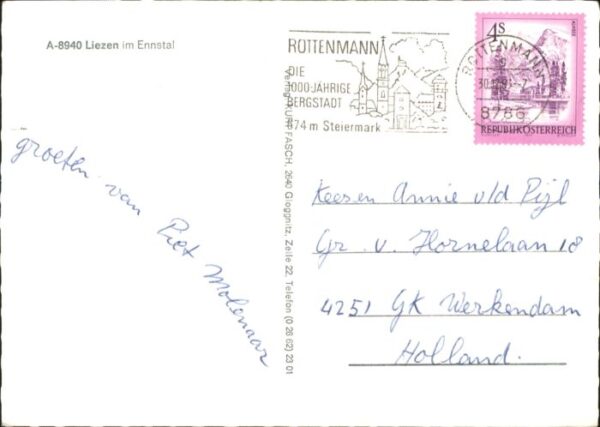 A-8940 Liezen im Ennstal
ROTTENMANN
DIE
1000JÄHRIGE
BERGSTADT
674 m Steiermark
4S
ROTTENMANN
8786
REPUBLIK ÖSTERREICH
KURT FASCH, 2640 Gloggnitz, Zeile 22, Telefon (0 26 62) 23 01
groeten van Piet Molenaar
Kees en Annie v/d Pijl
Gr. v. Hornelaan 18
4251 GK Werkendam
Holland.